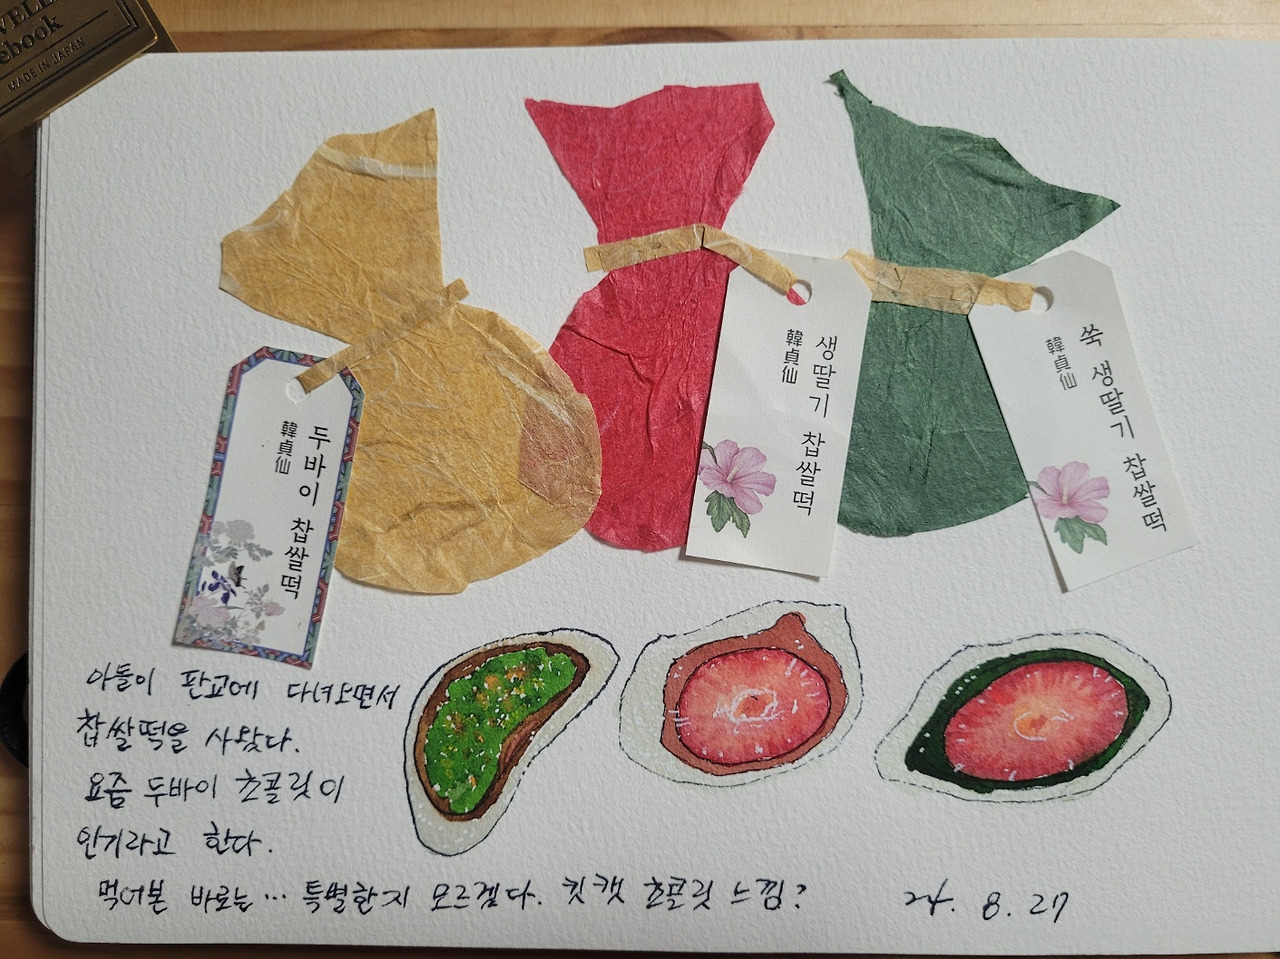 VELE
ebook
MADE IN JAPAN
두바이 찹쌀떡
韓貞仙
생딸기 찹쌀떡
韓貞仙
쑥 생딸기 찹쌀떡
韓貞仙
아들이 판교에 다녀오면서
찹쌀떡을 사왔다.
요즘 두바이 초콜릿이
인기라고 한다.
먹어본 바로는… 특별한지 모르겠다. 킷캣 초콜릿 느낌?
24. 8. 27